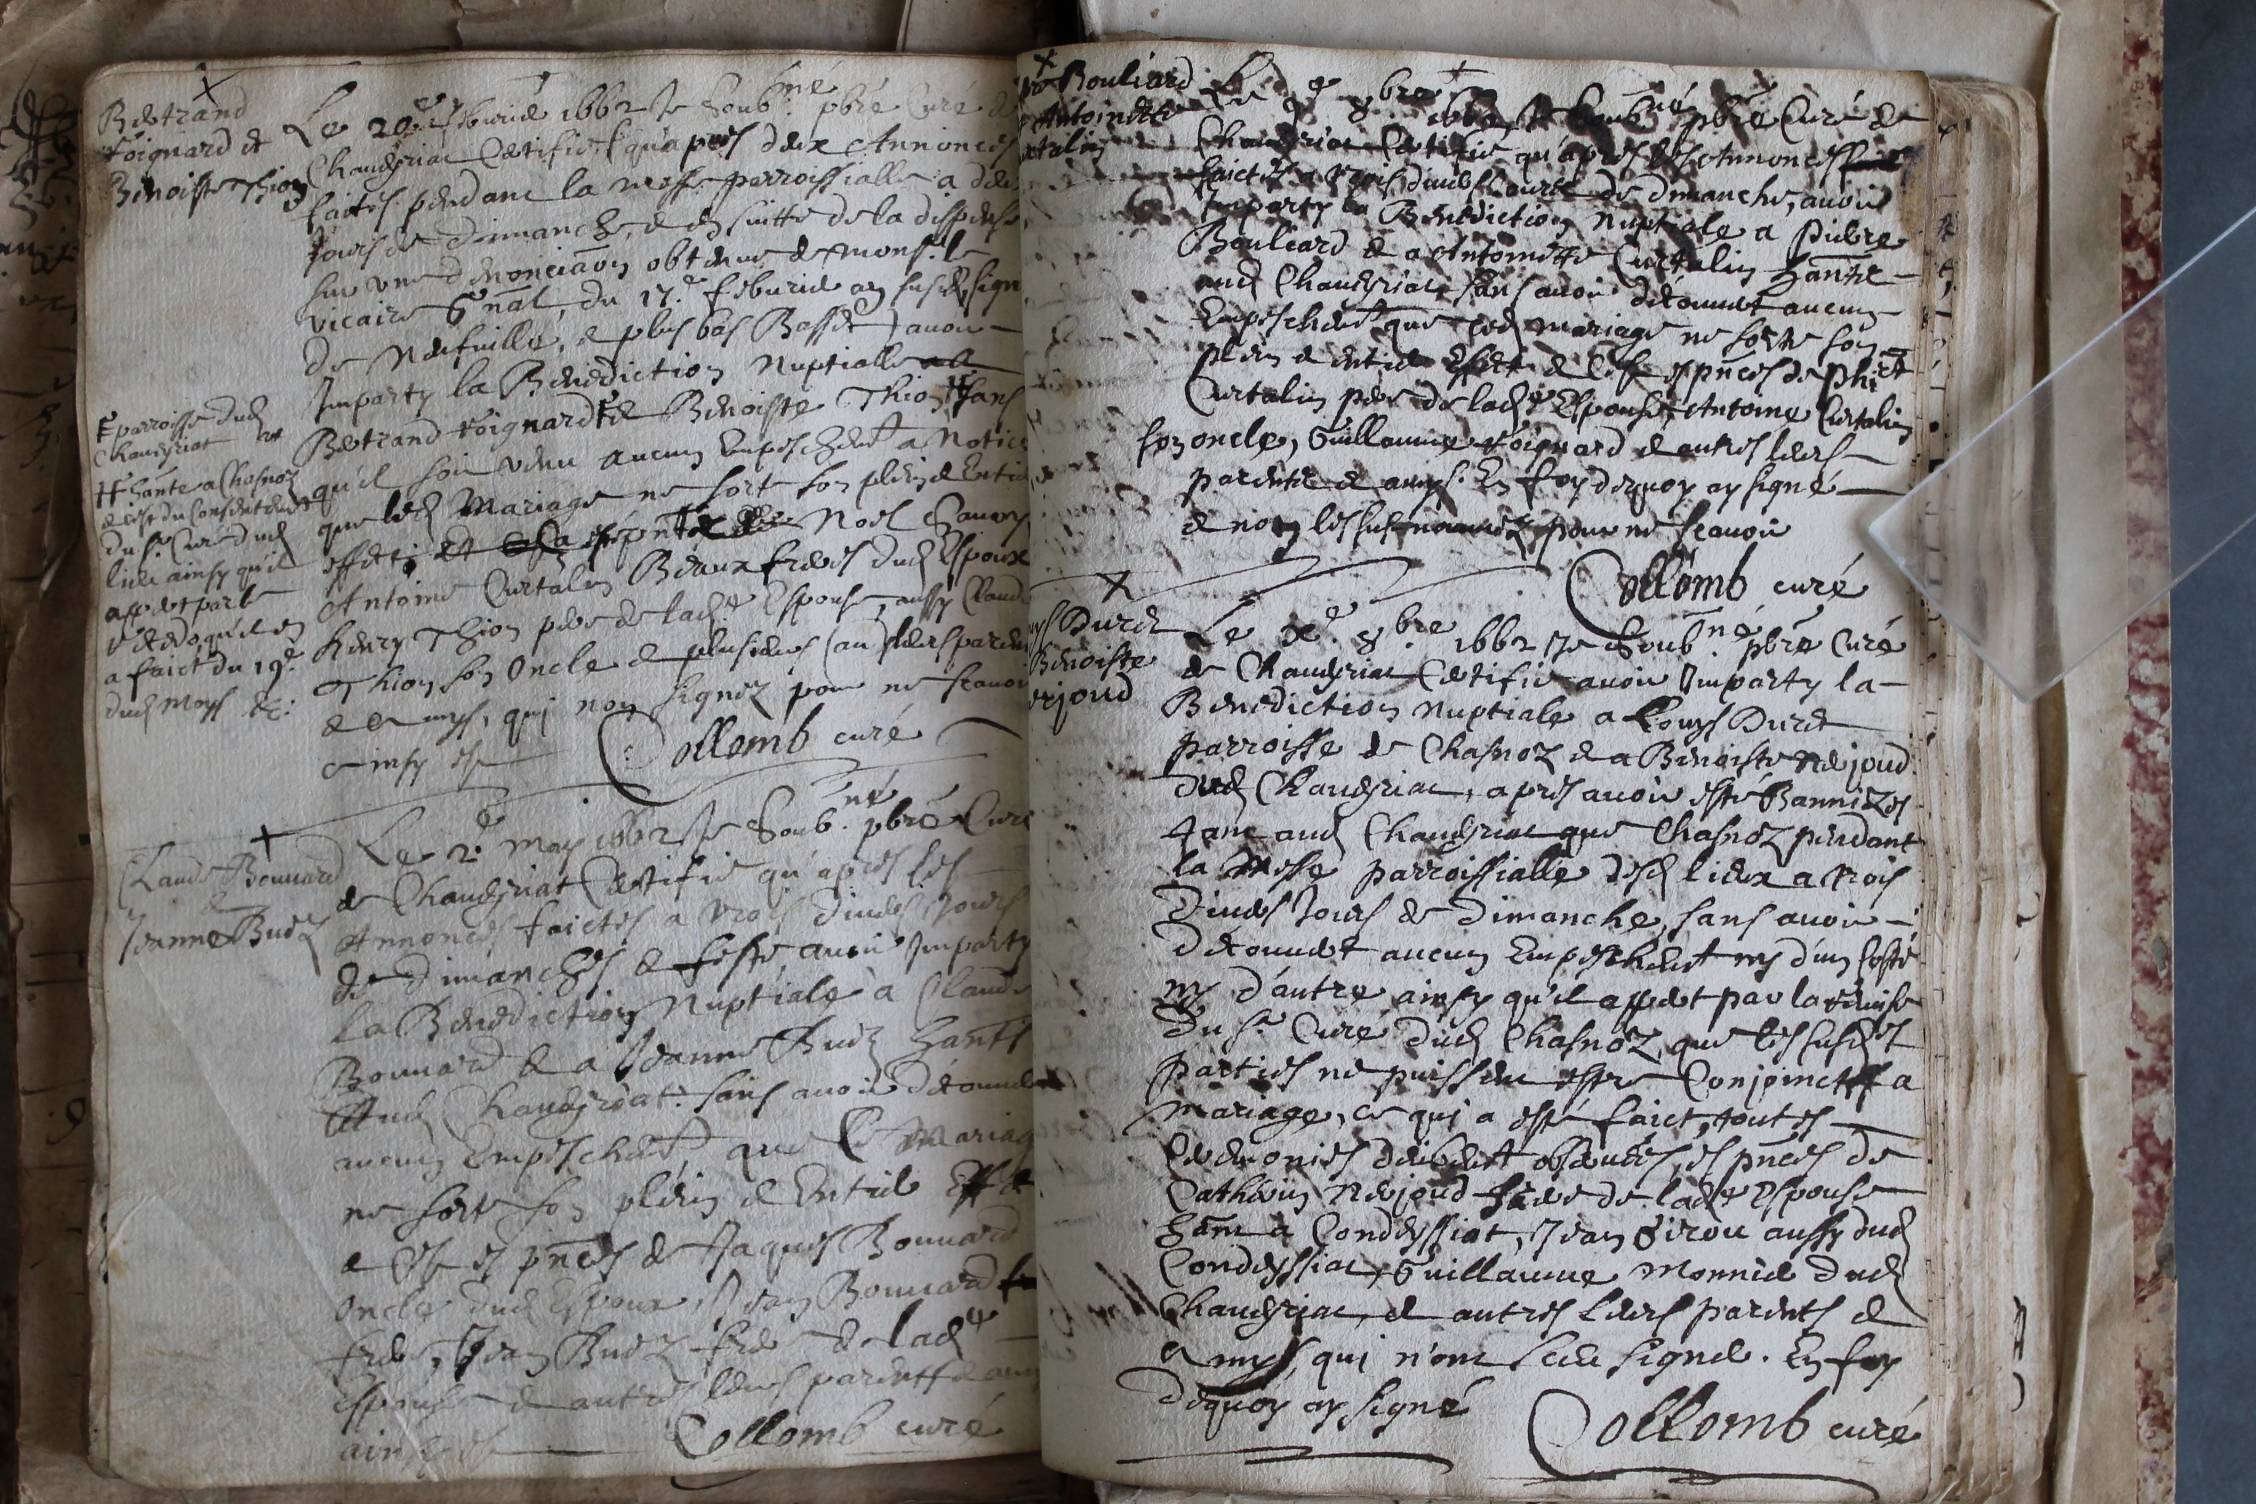 Bertrand
Poignard et
Benoiste Thion
Le 20e feburier 1662 Je Soub.né pbre Curé de
Chaveyriac Certifie qu'apres deux Annonces
faictes pendant la messe parroissialle a deux
Jours de dimanche, et en suitte de la dispense
sur une denonciaon obtenue de Mons.r le
vicaire Gnal, du 17.e feburier an susd, signé
De Neufville, et plus bas Basset, avoir
Imparty la Benediction Nuptialle
Bertrand Poignard et Benoiste Thion sans
qu'il soit venu aucun Empeschemt a Notice
que led Mariage ne sorte son plein et Entier
effect; Noel Savey
Antoine Curtalin Beaux freres dud Espoux
Henry Thion pere de lade Espouse, aussy Claude
Thion son Oncle et plusieurs leurs parents
et amys, qui non signez pour ne scavoir
ainsy est
Collomb curé
parroisse dud
Chaveyriat
hante a Chasnoz
et ce du Consentement
du sr Curé dud
lieu ainsy qu'il
appert par le
qu'il en
a faict du 19e
dud moys &c:
Claude Bouvard
&
Jeanne Buez
Le 2e may 1662 Je Soub.né pbre Curé
de Chaveyriat Certifie qu'apres les
Annonces faictes a trois divers Jours
de dimanches et feste avoir Imparty
la Benediction Nuptiale à Claude
Bouvard et a Jeanne Buez hants
Aud Chaveyriat. sans avoir decouvert
aucun Empeschemt que Ce Mariage
ne sorte son plein et Entier Effect
et Ce es pnces de Jaques Bouvard
Oncle dud Espoux, Jean Bouvard
frere, Jean Buez frere de lade
Espouse et autres leurs parents et amys
ainsy est
Collomb curé
Bouliard
Antoinette
Le 9e 8bre 1662 Je Soub.né pbre Curé de
Chaveyriac Certifie qu'apres les Annonces
faictes a trois divers Jours de dimanche, avoir
Imparty la Benediction Nuptiale a Pierre
Bouliard et a Antoinette Curtalin hante
aud Chaveyriac, sans avoir decouvert aucun
Empeschemt que ced mariage ne sorte son
plein et entier effect et Ce es pnces de Phict
Curtalin pere de lade Espouse, Antoine Curtalin
son oncle, Guillaume Poignard et autres leurs
parents et amys. En foy dequoy ay signé
et non les susnommez pour ne scavoir
Collomb curé
Duret
Benoiste
Nerjoud
Le Xe. 8bre 1662 Je Soub.né pbre Curé
de Chaveyriac Certifie avoir Imparty la
Benediction Nuptiale a Louys Duret
parroisse de Chasnoz et a Benoiste Nerjoud
dud Chaveyriac, apres avoir esté Bannizes
tant aud Chaveyriac que Chasnoz pendant
la Messe parroissialle desd lieux a trois
Divers Jours de dimanche, sans avoir
decouvert aucun Empeschemt ny d'un Costé
ny d'autre ainsy qu'il appert par la remise
du sr Curé dud Chasnoz, que les susdet
parties ne puissent estre Conjoinctes a
mariage, ce qui a esté faict, toutes
Ceremonies deubemt observées, es pnces de
Catherin Nerjoud frere de lade Espouse
hant a Condeyssiat, Jean Girou aussy dud
Condeyssiac, Guillaume Monnier dud
Chaveyriac, et autres leurs parents et
amys, qui n'ont sceu signer. En foy
dequoy ay signé
Collomb curé